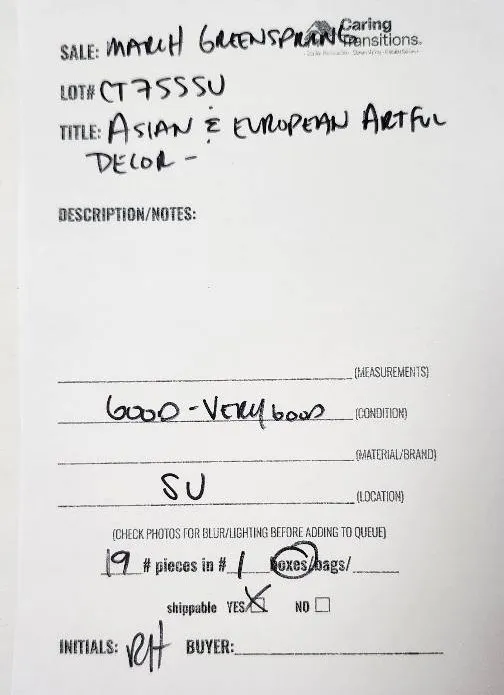 Caring
SALE: MARCH GREENSPRING Transitions.
LOT# CT7555U
TITLE: ASIAN & EUROPEAN ARTFUL
DECOR -
DESCRIPTION/NOTES:
(MEASUREMENTS)
GOOD - VERY GOOD (CONDITION)
(MATERIAL/BRAND)
SU (LOCATION)
(CHECK PHOTOS FOR BLUR/LIGHTING BEFORE ADDING TO QUEUE)
19 # pieces in # 1 boxes/bags/
shippable YES NO
INITIALS: RH BUYER: